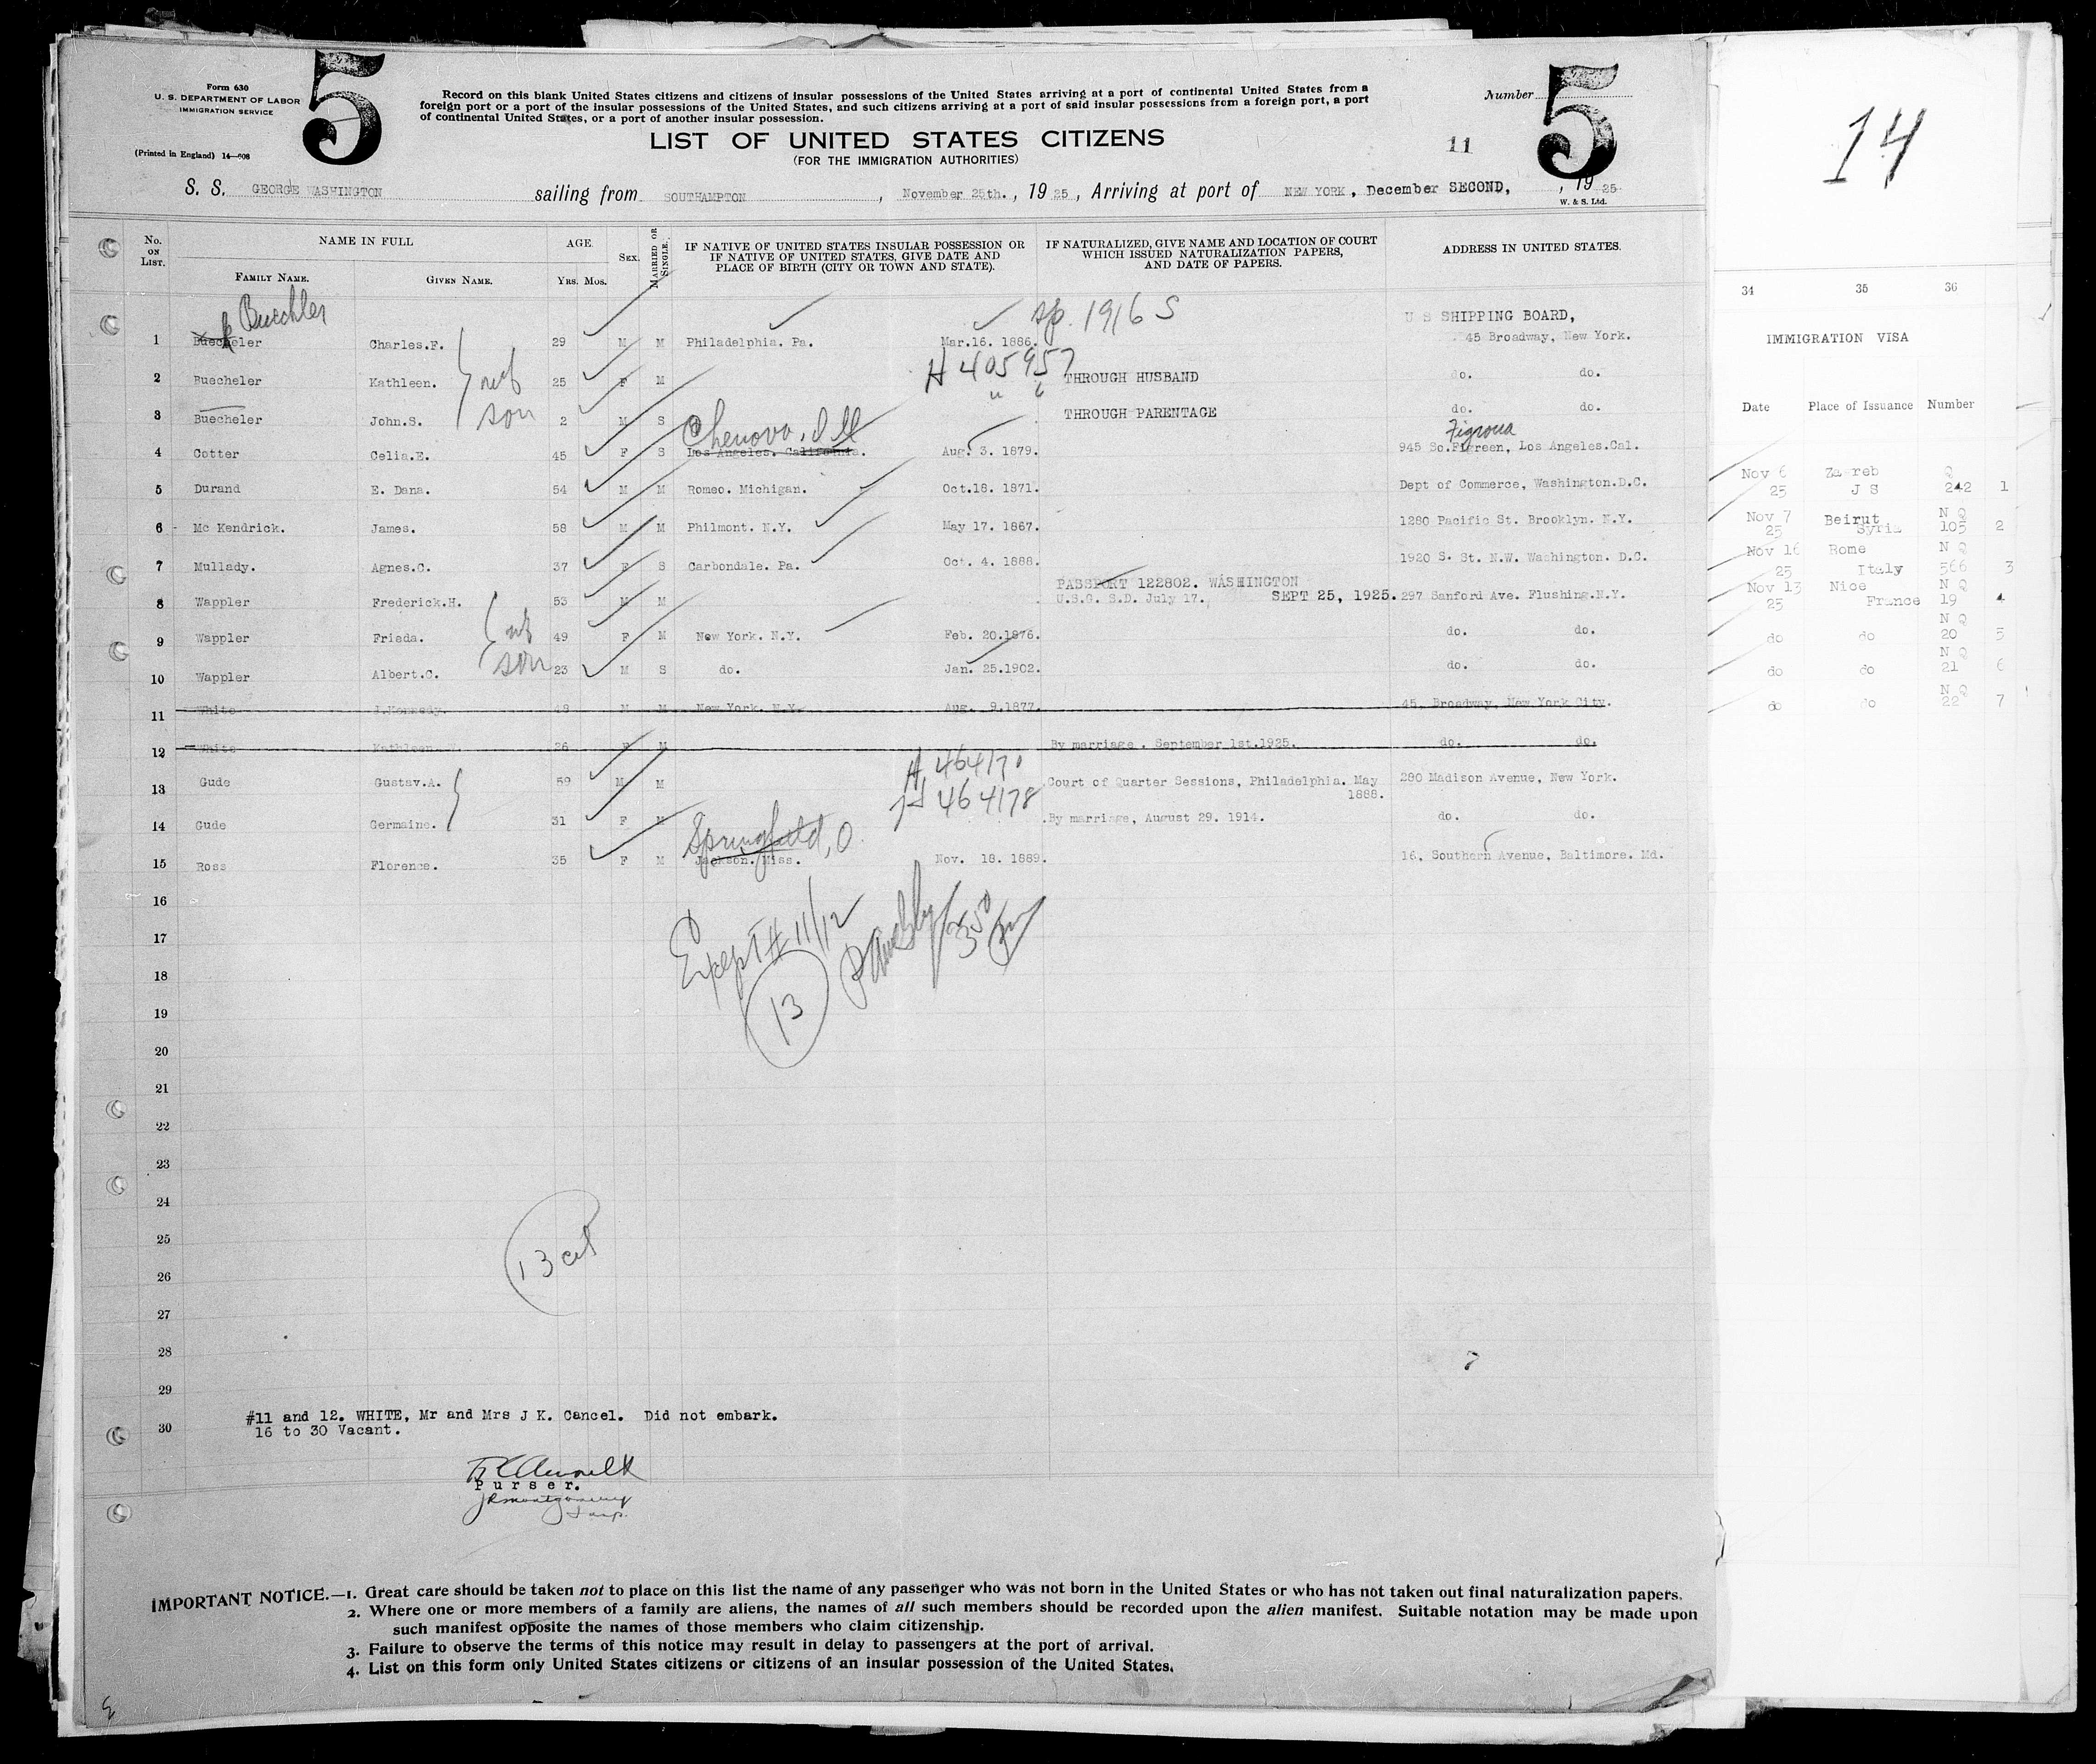 5
5
14
Form 630
U. S. DEPARTMENT OF LABOR
IMMIGRATION SERVICE
(Printed in England) 14—608
Record on this blank United States citizens and citizens of insular possessions of the United States arriving at a port of continental United States from a
foreign port or a port of the insular possessions of the United States, and such citizens arriving at a port of said insular possessions from a foreign port, a port
of continental United States, or a port of another insular possession.
Number
LIST OF UNITED STATES CITIZENS
(FOR THE IMMIGRATION AUTHORITIES)
11
S. S. GEORGE WASHINGTON sailing from SOUTHAMPTON, November 25th., 1925, Arriving at port of NEW YORK, December SECOND, , 1925
W. & S. Ltd.
No. ON LIST. NAME IN FULL AGE. SEX. MARRIED OR SINGLE. IF NATIVE OF UNITED STATES INSULAR POSSESSION OR IF NATIVE OF UNITED STATES, GIVE DATE AND PLACE OF BIRTH (CITY OR TOWN AND STATE). IF NATURALIZED, GIVE NAME AND LOCATION OF COURT WHICH ISSUED NATURALIZATION PAPERS, AND DATE OF PAPERS. ADDRESS IN UNITED STATES.
FAMILY NAME. GIVEN NAME. YRS. MOS.
Buechler
sp. 1916 S
U S SHIPPING BOARD,
1 Buecheler Charles.F. 29 M M Philadelphia. Pa. Mar.16. 1886. 45 Broadway, New York.
H 405957
2 Buecheler Kathleen. 25 F M THROUGH HUSBAND do. do.
3 Buecheler John.S. son 2 M S THROUGH PARENTAGE do. do.
Chenova, Ill
Figroua
4 Cotter Celia.E. 45 F S Los Angeles. California. Aug. 3. 1879. 945 So.Figreen, Los Angeles.Cal.
5 Durand E. Dana. 54 M M Romeo. Michigan. Oct.18. 1871. Dept of Commerce, Washington.D.C.
6 Mc Kendrick. James. 58 M M Philmont. N.Y. May 17. 1867. 1280 Pacific St. Brooklyn. N.Y.
7 Mullady. Agnes.C. 37 F S Carbondale. Pa. Oct. 4. 1888. 1920 S. St. N.W. Washington. D.C.
PASSPORT 122802. WASHINGTON
8 Wappler Frederick.H. 53 M M U.S.G. S.D. July 17. SEPT 25, 1925. 297 Sanford Ave. Flushing.N.Y.
9 Wappler Frieda. 49 F M New York. N.Y. Feb. 20.1876. do. do.
10 Wappler Albert.C. son 23 M S do. Jan. 25.1902. do. do.
11 White J.Kennedy. 48 M M New York. N.Y. Aug. 9.1877. 45. Broadway, New York City.
12 White Kathleen 26 F M By marriage. September 1st.1925. do. do.
H 464170
13 Gude Gustav.A. 59 M M Court of Quarter Sessions, Philadelphia. May 1888. 280 Madison Avenue, New York.
H 464178
14 Gude Germaine. 31 F M By marriage, August 29. 1914. do. do.
Springfield, O
15 Ross Florence. 35 F M Jackson. Miss. Nov. 18. 1889. 16, Southern Avenue, Baltimore. Md.
16
17
Except # 11/12
18
13
19
20
21
22
23
24
25
13 cit
26
27
28
7
29
30
#11 and 12. WHITE, Mr and Mrs J K. Cancel. Did not embark.
16 to 30 Vacant.
Purser.
JRMontgomery
Insp.
IMPORTANT NOTICE.—1. Great care should be taken not to place on this list the name of any passenger who was not born in the United States or who has not taken out final naturalization papers.
2. Where one or more members of a family are aliens, the names of all such members should be recorded upon the alien manifest. Suitable notation may be made upon
such manifest opposite the names of those members who claim citizenship.
3. Failure to observe the terms of this notice may result in delay to passengers at the port of arrival.
4. List on this form only United States citizens or citizens of an insular possession of the United States.
34 35 36
IMMIGRATION VISA
Date Place of Issuance Number
Nov 6 Zagreb Q
25 J S 242 1
Nov 7 Beirut N Q
25 Syria 105 2
Nov 16 Rome N Q
25 Italy 566 3
Nov 13 Nice N Q
25 France 19 4
N Q
do do 20 5
N Q
do do 21 6
N Q
do do 22 7